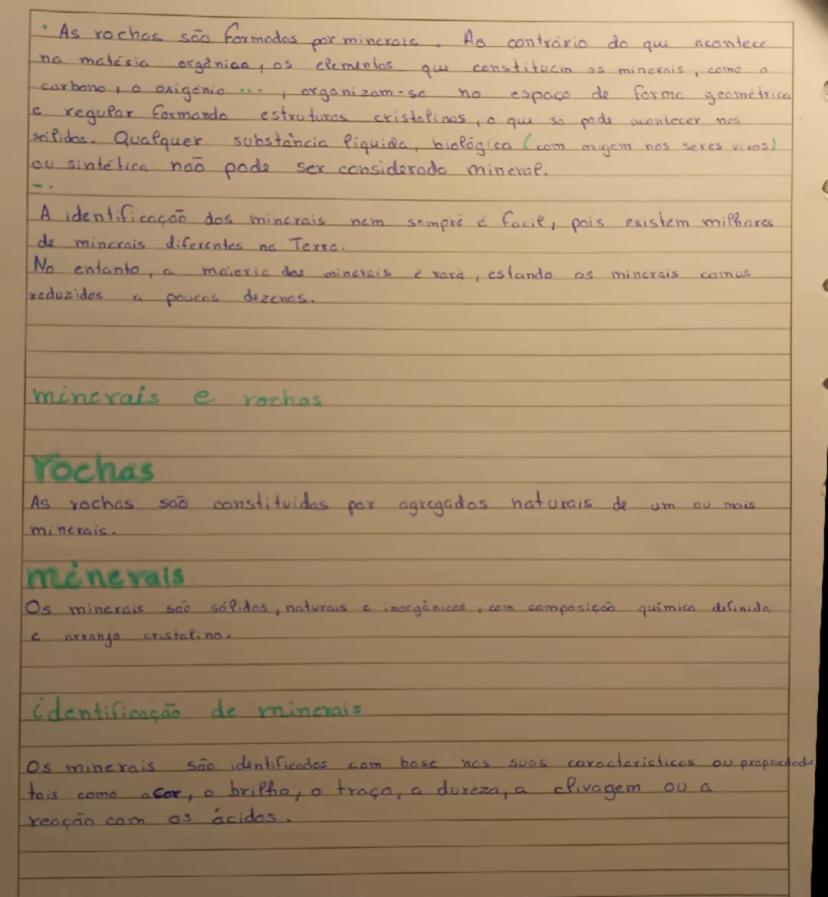 • As rochas são formadas por minerais. Ao contrário do que acontece
na matéria orgânica, os elementos que constituem os minerais, como o
carbono, o oxigénio ..., organizam-se no espaço de forma geométrica
e regular formando estruturas cristalinas, o que só pode acontecer nos
sólidos. Qualquer substância líquida, biológica (com origem nos seres vivos)
ou sintética não pode ser considerada mineral.
A identificação dos minerais nem sempre é facil, pois existem milhares
de minerais diferentes na Terra.
No entanto, a maioria dos minerais é rara, estando os minerais comus
reduzidos a poucas dezenas.
minerais e rochas
rochas
As rochas são constituidas por agregados naturais de um ou mais
minerais.
minerais
Os minerais são sólidos, naturais e inorgânicos, com composição química definida
e arranjo cristalino.
identificação de minerais
Os minerais são identificados com base nas suas caracteristicas ou propriedade
tais como a cor, o brilho, o traço, a dureza, a clivagem ou a
reação com os ácidos.